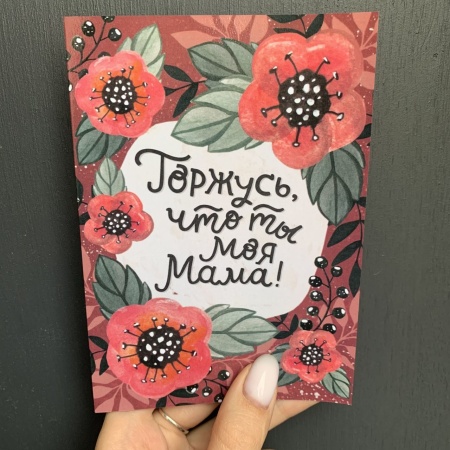 Горжусь,
что ты
моя
Мама!